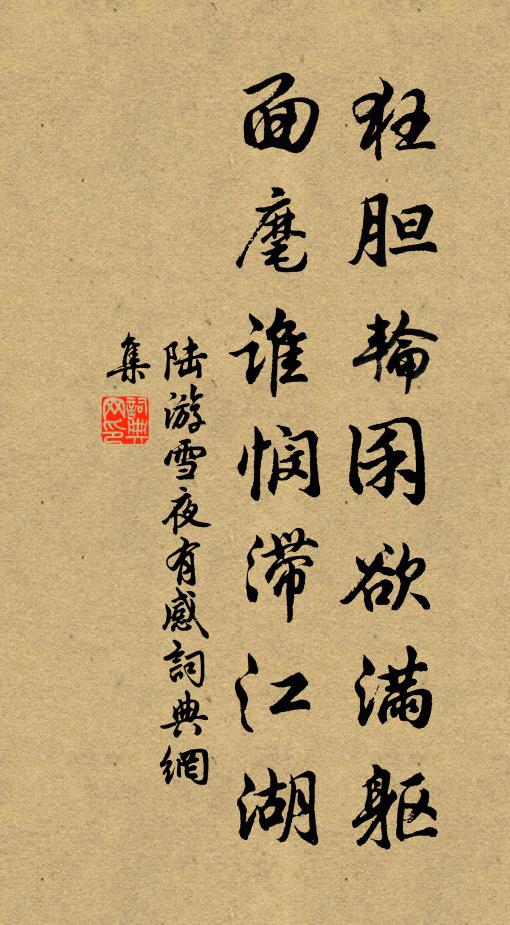 狂胆輪囷欲满躯
面麾谁悯滞江湖
陆游雪夜有感詞典網
集
詞典网印